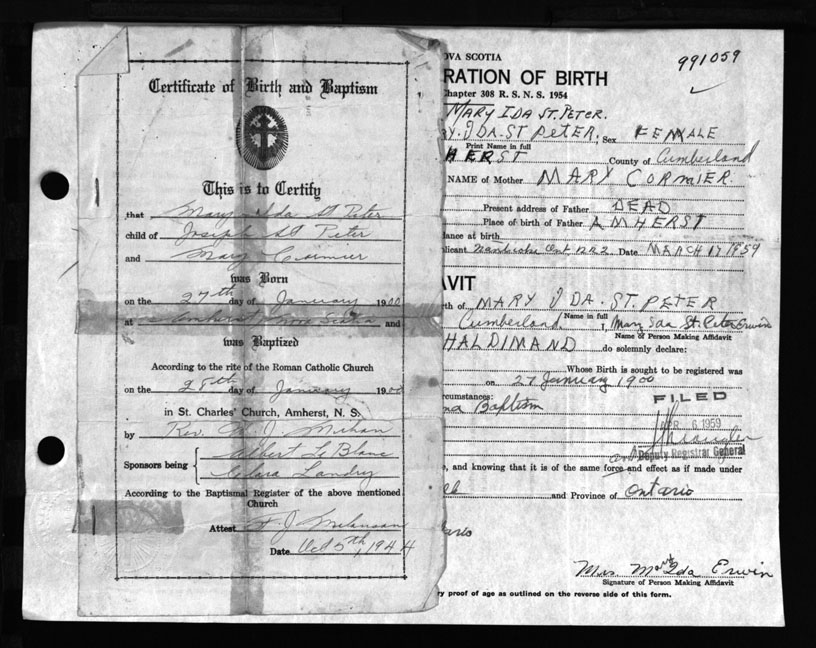 Certificate of Birth and Baptism
This is to Certify
that Mary Ida St Peter
child of Joseph St Peter
and Mary Cormier
was Born
on the 27th day of January 1900
at Amherst Nova Scotia and
was Baptized
According to the rite of the Roman Catholic Church
on the 28th day of January 1900
in St. Charles' Church, Amherst, N. S.
by Rev. J. Mihan
Albert Le Blanc
Sponsors being
Clara Landry
According to the Baptismal Register of the above mentioned
Church
Attest J Melanson
Date Oct 5th, 1944
OVA SCOTIA
991059
RATION OF BIRTH
hapter 308 R. S. N. S. 1954
MARY IDA ST. PETER.
Y. IDA. ST PETER, Sex FEMALE
Print Name in full
HERST County of Cumberland
NAME of Mother MARY CORMIER
Present address of Father DEAD
Place of birth of Father AMHERST
dance at birth
plicant Nanticoke Ont. RR2 Date MARCH 17 1959
AVIT
rth of MARY IDA. ST. PETER
Name in full
Cumberland I, Mary Ida St. Peter Erwin
Name of Person Making Affidavit
HALDIMAND do solemnly declare:
Whose Birth is sought to be registered was
on 27 January 1900
rcumstances:
Baptism
FILED
PR 6 1959
Deputy Registrar General
, and knowing that it is of the same force and effect as if made under
and Province of Ontario
ario
Mrs Mary Ida Erwin
Signature of Person Making Affidavit
ry proof of age as outlined on the reverse side of this form.